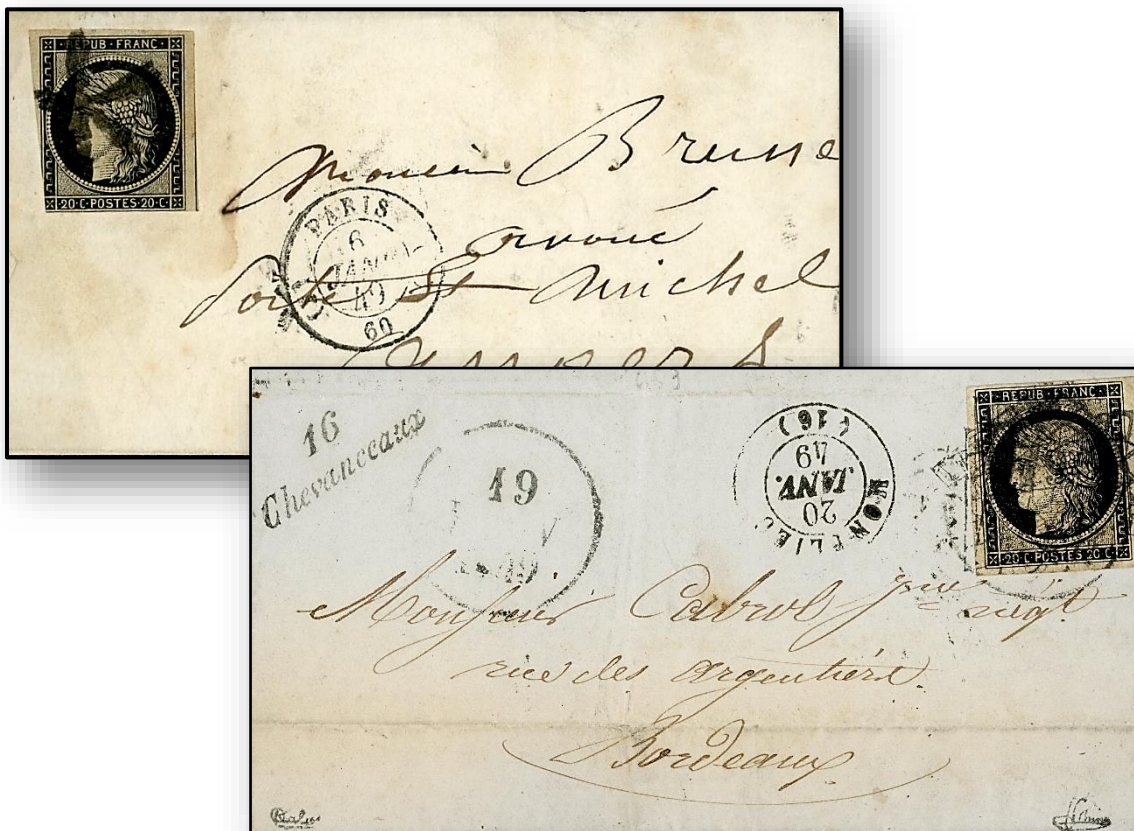 REPUB·FRANC·
20·C·POSTES·20·C·
Monsieur Brune
avoué
Porte St Michel
PARIS
6
JANV.
49
60
16
Chevanceaux
19
1849
MONTLIEU
20
JANV.
49
(16)
REPUB·FRANC·
20·C·POSTES·20·C·
Monsieur Cabrol jne négt
rue des argentiers
Bordeaux